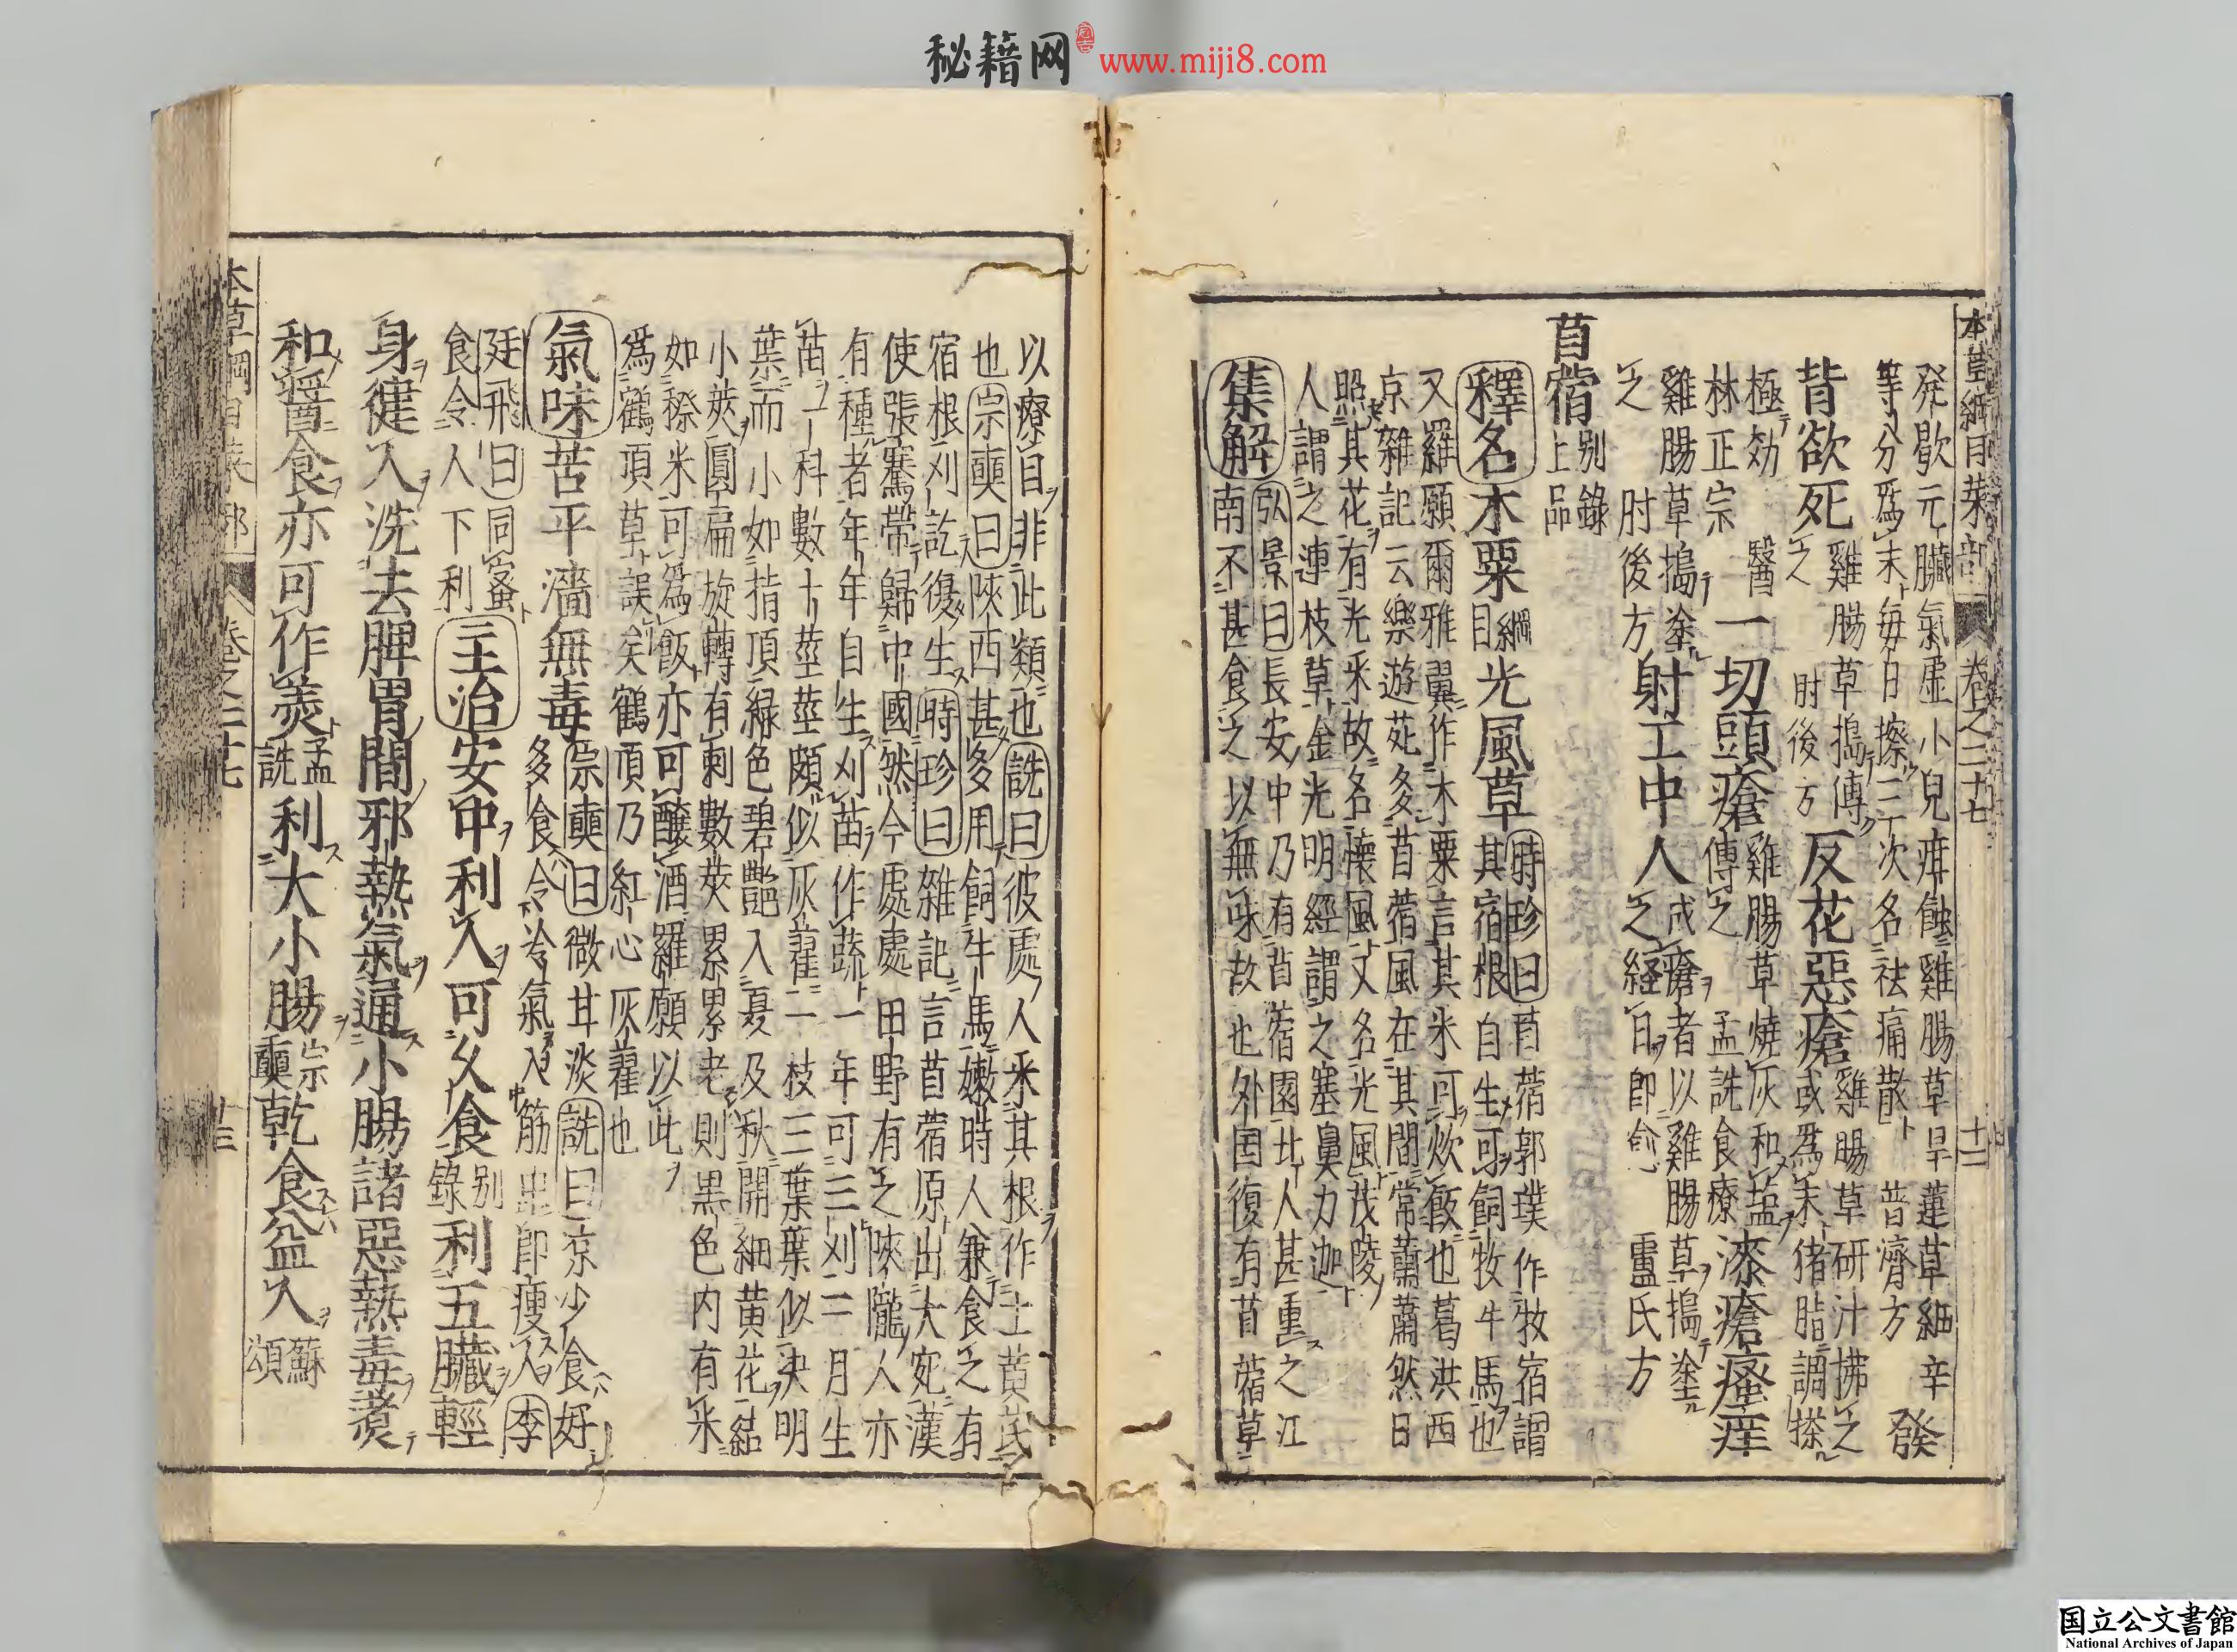 秘籍网 www.miji8.com
本草綱目菜部 卷之二十七 十二
発歇元臟氣虛小兒疳蝕雞腸草旱蓮草細辛
等分爲末每日擦三次名祛痛散 普濟方 發
背欲死 雞腸草搗傅之 肘後方 反花惡瘡 雞腸草研汁拂之或為末猪脂調搽
極効 醫林正宗 一切頭瘡 雞腸草燒灰和盐傅之 孟詵食療 漆瘡瘙痒
雞腸草搗塗之 肘後方 射工中人 成瘡者以雞腸草搗塗之経日即愈 盧氏方
苜蓿 別錄上品
釋名 木粟 綱目 光風草 時珍曰苜蓿郭璞作牧宿謂其宿根自生可飼牧牛馬也
又羅願爾雅翼作木粟言其米可炊飯也葛洪西
京雜記云樂遊苑多苜蓿風在其間常蕭蕭然日
照其花有光采故名懷風又名光風茂陵
人謂之連枝草金光明經謂之塞鼻力迦
集解 弘景曰長安中乃有苜蓿園北人甚重之江
南不甚食之以無味故也外国復有苜蓿草
以療目非此類也詵曰彼處人采其根作土黄芪
也宗奭曰陝西甚多用飼牛馬嫩時人兼食之有
宿根刈訖復生時珍曰雑記言苜蓿原出大宛漢
使張騫帶歸中國然今處處田野有之陝隴人亦
有種者年年自生刈苗作蔬一年可三刈二月生
苗一科數十莖莖頗似灰藋一枝三葉葉似決明
葉而小如指頂緑色碧艷入夏及秋開細黄花結
小莢圓扁旋轉有刺數莢累累老則黒色内有米
如穄米可為飯亦可釀酒羅願以此
爲鶴頂草誤矣鶴頂乃紅心灰藋也
氣味 苦平濇無毒 宗奭曰微甘淡詵曰凉少食好多食令冷氣入筋中即瘦人李
廷飛曰同蜜食令人下利 主治 安中利人可久食 別錄 利五臟輕
身健人洗去脾胃間邪熱氣通小腸諸惡熱毒煑
和醬食亦可作羹 孟詵 利大小腸 宗奭 乾食益人 蘇頌
本草綱目菜部 卷之二十七 十三
国立公文書館
National Archives of Japan